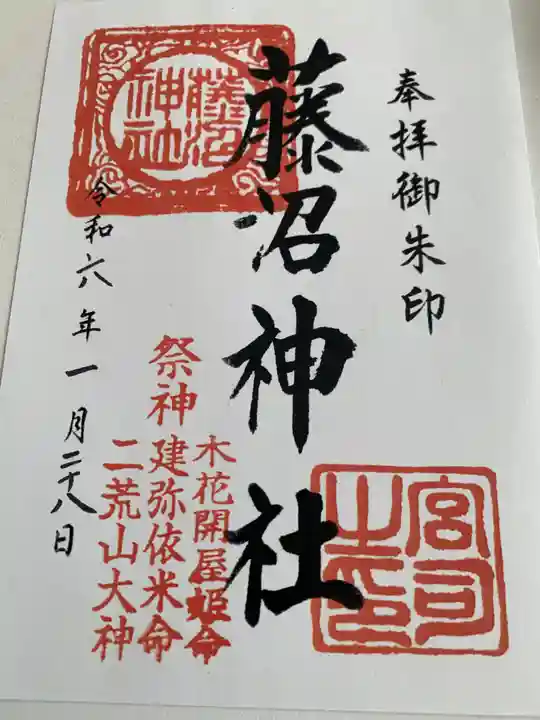 奉拝御朱印
藤沼神社
藤沼
神社
宮司
之印
祭神
木花開屋姫命
建弥依米命
二荒山大神
令和六年一月二十八日